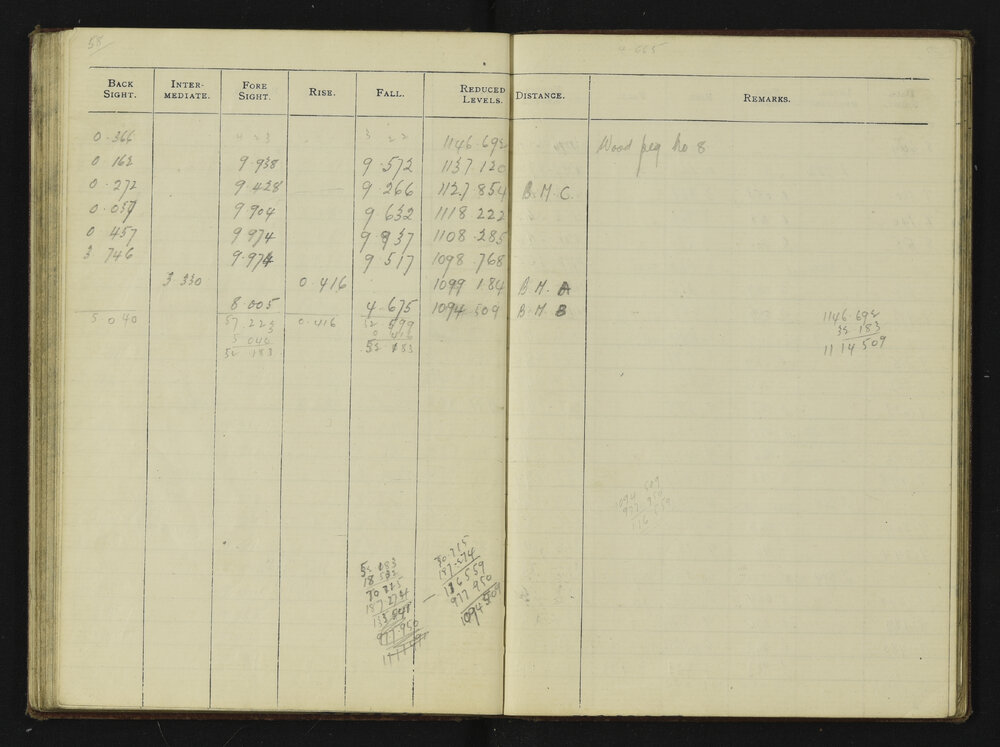 58
4.665
BACK SIGHT. INTER-MEDIATE. FORE SIGHT. RISE. FALL. REDUCED LEVELS. DISTANCE. REMARKS.
0.366 1146.692 Wood peg No 8
0.162 9.938 9.572 1137.120
0.272 9.428 9.266 1127.854 B.M.C.
0.037 9.904 9.632 1118.222
0.457 9.974 9.937 1108.285
3.746 9.974 9.517 1098.768
3.330 0.416 1099.184 B.M. A
8.005 4.675 1094.509 B.M. B
5.040 57.223 0.416 52 599
5 040 0 416
52 183 52 183
1146.692
52 183
1114 509
1094 509
977 950
116 559
52 183
18 532
70 715
187.274
977.950
70.715
187.274
116 559
977.950
1094 509